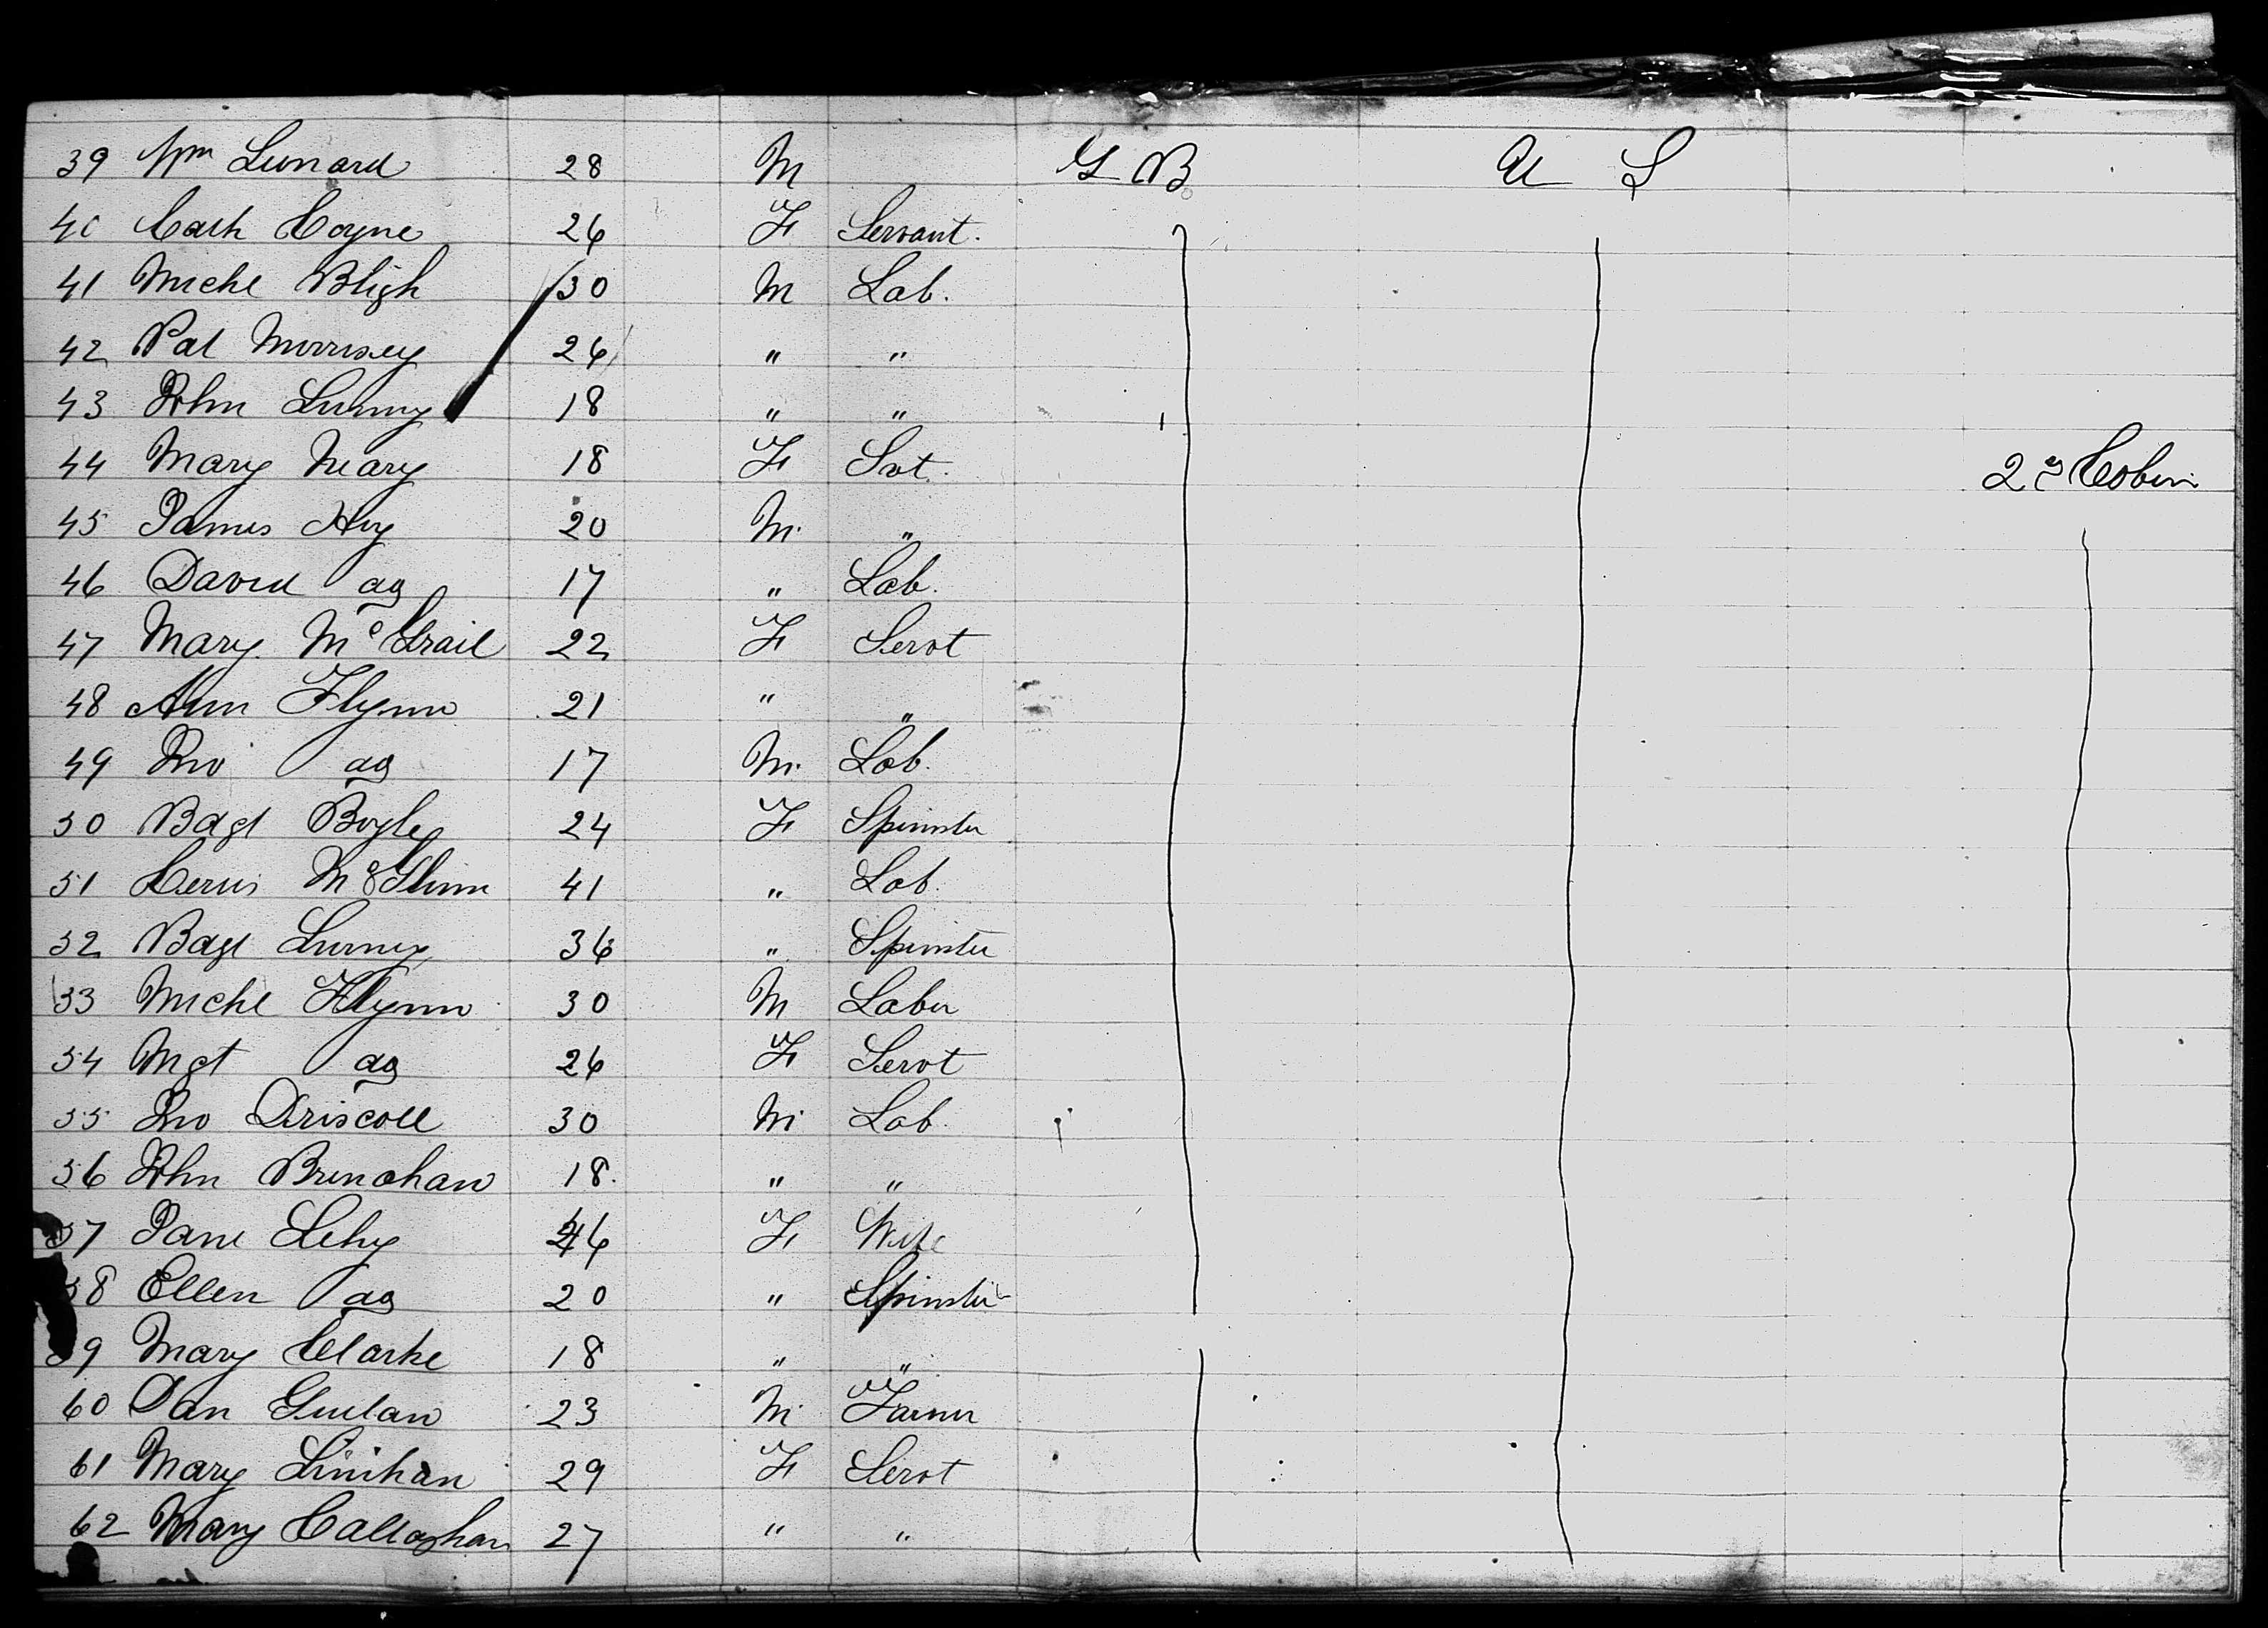 39 Wm Lenard 28 M G B U S
40 Cath Coyne 26 F Servant.
41 Michl Bligh 30 M Lab.
42 Pat Morrisey 26 " "
43 John Lunny 18 " "
44 Mary Neary 18 F Svt. 2nd Cobin
45 James Hoy 20 M. "
46 David do 17 " Lab.
47 Mary McGrail 22 F Servt
48 Ann Flynn 21 " "
49 Jno do 17 M. Lab.
50 Bdgt Boyle 24 F Spinster
51 McGlinn 41 " Lab.
52 Bdgt Lunny 36 " Spinster
53 Michl Flynn 30 M Labr
54 Mgt do 26 F Servt
55 Jno Driscoll 30 M Lab.
56 John Brenahan 18. " "
57 Jane Lehy 46 F Wife
58 Ellen do 20 " Spinster
59 Mary Clarke 18 " "
60 Dan 23 M. Farmr
61 Mary Linihan 29 F Servt
62 Mary Callaghan 27 " "